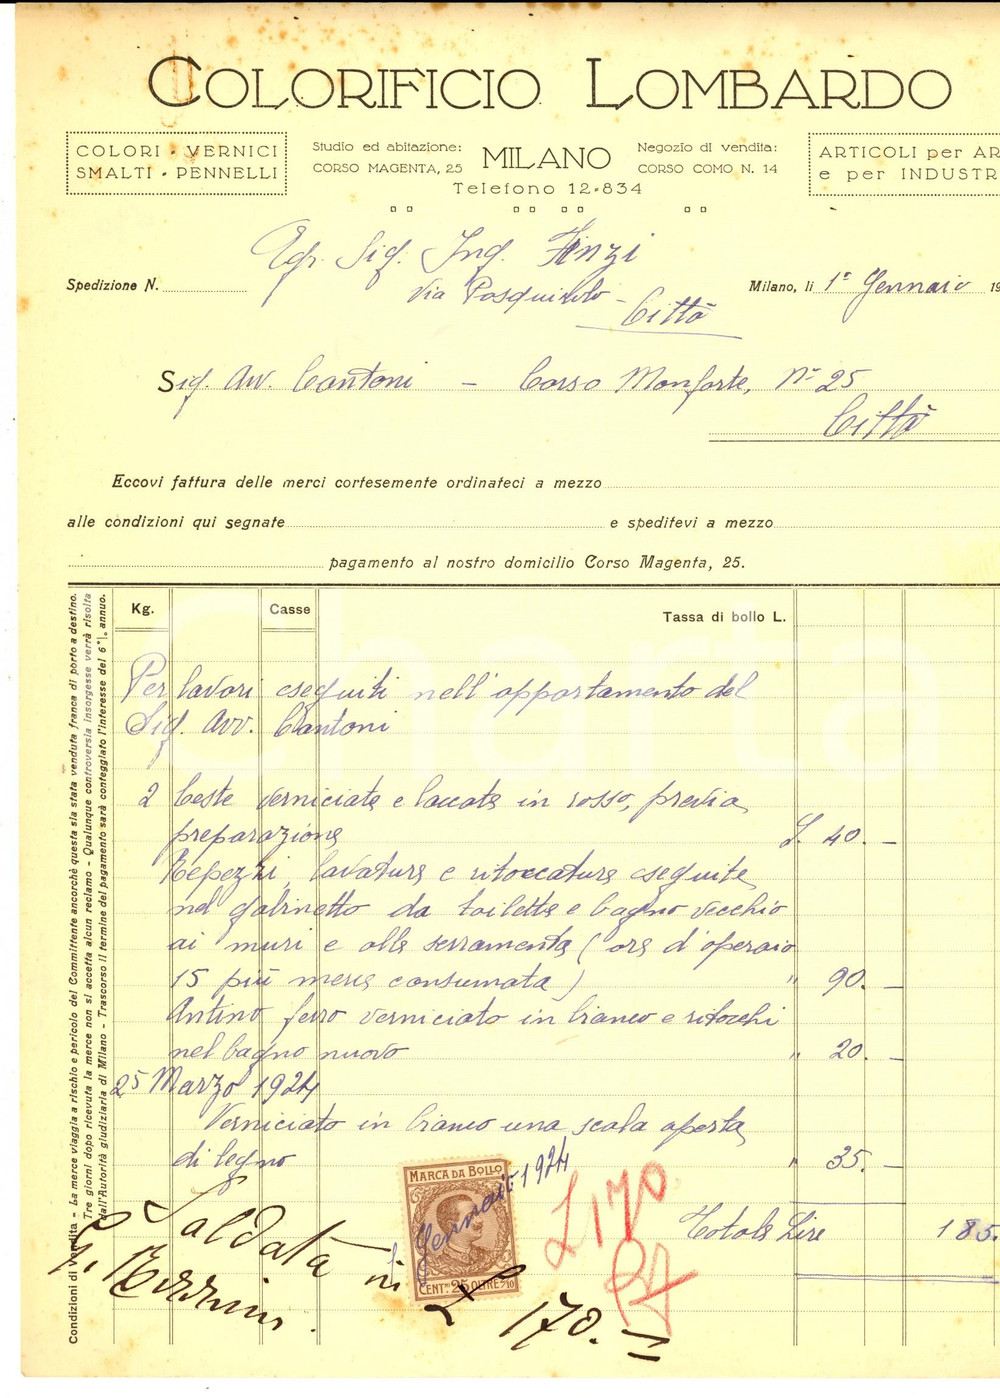 COLORIFICIO LOMBARDO
COLORI · VERNICI
SMALTI · PENNELLI
Studio ed abitazione:
CORSO MAGENTA, 25
MILANO
Telefono 12-834
Negozio di vendita:
CORSO COMO N. 14
ARTICOLI per AR
e per INDUSTR
Egr. Sig. Ing. Finzi
Via Pasquirolo -
Città
Spedizione N.
Milano, li 1° Gennaio 19
Sig. Avv. Cantoni - Corso Monforte, N° 25
Città
Eccovi fattura delle merci cortesemente ordinateci a mezzo
alle condizioni qui segnate e speditevi a mezzo
pagamento al nostro domicilio Corso Magenta, 25.
Kg. Casse Tassa di bollo L.
Per lavori eseguiti nell'appartamento del
Sig. Avv. Cantoni
2 Ceste verniciate e laccate in rosso, previa
preparazione £. 40. -
Repezzi, lavature e ritoccature eseguite
nel gabinetto da toilette e bagno vecchio
ai muri e alle serramenta (ore d'operaio
15 più merce consumata) " 90. -
Antino ferro verniciato in bianco e ritocchi
nel bagno nuovo " 20. -
25 Marzo 1924
Verniciato in bianco una scala aperta
di legno " 35. -
Totale Lire 185.
MARCA DA BOLLO
CENT. 25 OLTRE 3/10
Gennaio 1924
£ 170
Saldata in £ 170. =
Condizioni di vendita - La merce viaggia a rischio e pericolo del Committente ancorchè questa sia stata venduta franca di porto a destino.
Tre giorni dopo ricevuta la merce non si accetta alcun reclamo - Qualunque controversia insorgesse verrà risolta
dall'Autorità giudiziaria di Milano - Trascorso il termine del pagamento sarà conteggiato l'interesse del 6 % annuo.